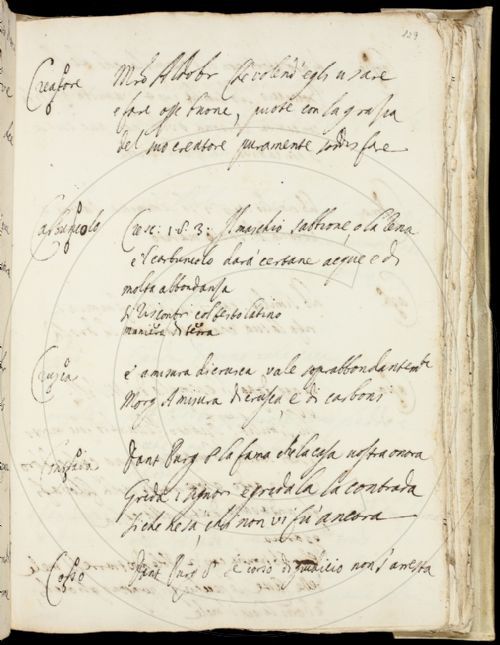 129
Creatore Mro Aldobr Che volend' egli usare
e fare opre buone, puote con la grazia
del suo creatore puramente sodisfare
Carbuncolo Cresc: 1. 8. 3: Il maschio sabbione, o la Rena
e 'l carbuncolo dará certane acque e di
molta abbondanza
di Riscontri col testo latino
maniera di terra
Crusca è a misura di crusca vale soprabbondantemte
Morg A misura di crusca, e di carboni
Contrada Dant Purg 8 la fama che la casa nostra onora
Grida i signori e grida la contrada
si che ne sa, chi non vi fú ancora
Corso Dant Purg 8 le corso di giudicio non s' arresta